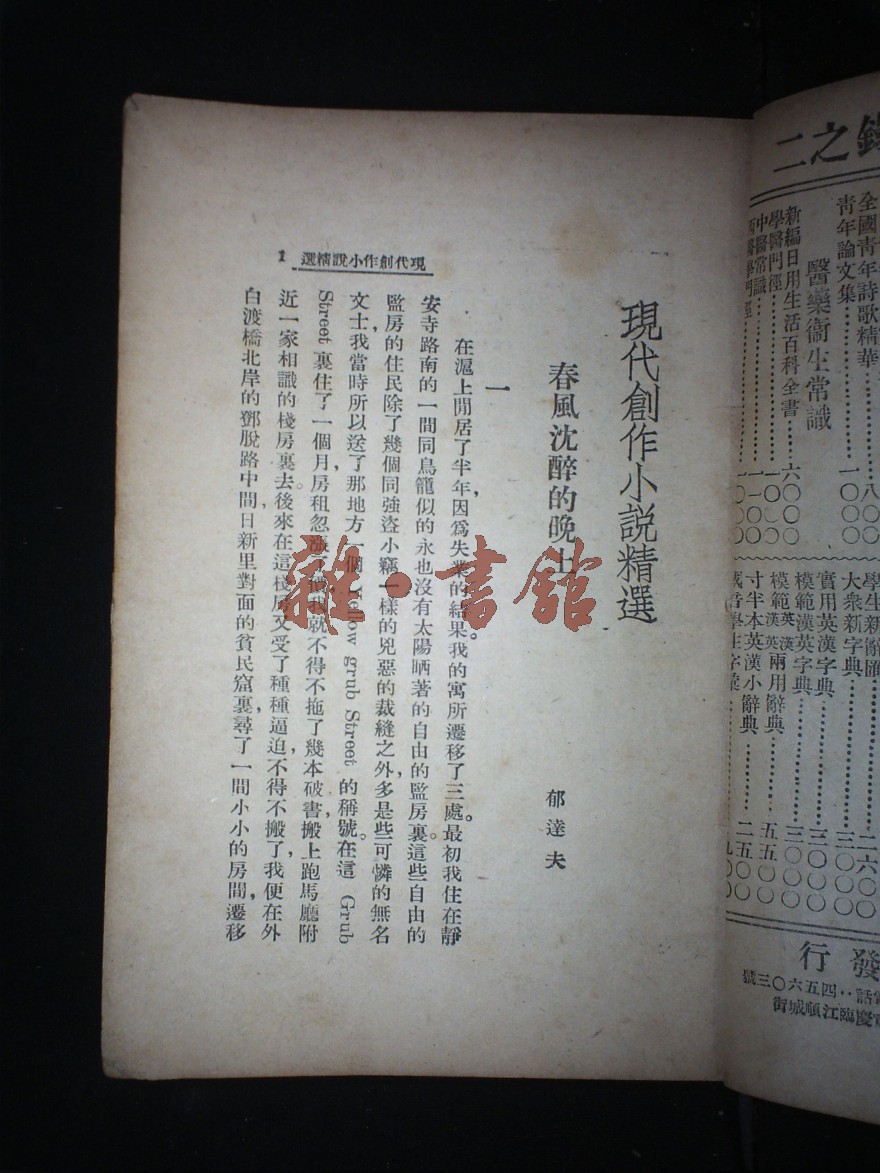 現代創作小說精選 1
現代創作小說精選
春風沈醉的晚上
郁達夫
一
在滬上閒居了半年，因爲失業的結果我的寓所遷移了三處。最初我住在靜
安寺路南的一間同鳥籠似的永也沒有太陽晒著的自由的監房裏。這些自由的
監房的住民除了幾個同強盜小竊一樣的兇惡的裁縫之外，多是些可憐的無名
文士，我當時所以送了那地方一個 Yellow grub Street 的稱號。在這 Grub
Street 裏住了一個月，房租忽漲了價，我就不得不拖了幾本破書，搬上跑馬廳附
近一家相識的棧房裏去。後來在這棧房又受了種種逼迫，不得不搬了，我便在外
白渡橋北岸的鄧脫路中間，日新里對面的貧民窟裏，尋了一間小小的房間，遷移
雜·書館
之二
全國青年詩歌精華 八〇〇
青年論文集 一〇〇〇
醫藥衞生常識
新編日用生活百科全書 六〇〇〇
學醫門徑 一〇〇
中醫常識 一一〇〇
學生新辭匯 二六〇〇
大衆新字典 三〇〇
實用英漢字典 三〇〇
模範漢英字典 三〇〇〇
模範英漢漢英兩用辭典 五五〇〇
寸半本英漢小辭典 二五〇
發行
話：四五六〇三號
慶臨江順城街